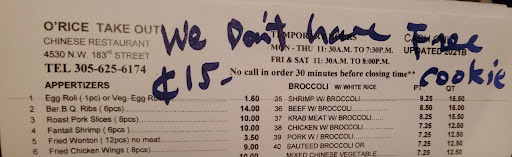 We Don't have Free
cookie
¢15-
O'RICE TAKE OUT
CHINESE RESTAURANT
4530 N.W. 183rd STREET
TEL 305-625-6174
MON - THU 11: 30A.M. TO 7:30P.M.
FRI & SAT 11: 30A.M. TO 8:00P.M.
UPDATED 2021B
No call in order 30 minutes before closing time**
APPERTIZERS
1 Egg Roll ( 1pc) or Veg. Egg Roll 1.60
2 Bar.B.Q. Ribs ( 6pcs) 14.00
3 Roast Pork Slices ( 8pcs) 10.00
4 Fantail Shrimp ( 6pcs) 10.00
5 Fried Wonton (12pcs) no meat 3.50
6 Fried Chicken Wings ( 8pcs) 10.00
BROCCOLI w/ WHITE RICE PT QT
35 SHRIMP W/ BROCCOLI 9.25 16.50
36 BEEF W/ BROCCOLI 8.50 16.50
37 KRAB MEAT W/ BROCCOLI 7.25 12.50
38 CHICKEN W/ BROCCOLI 7.25 12.50
39 PORK W / BROCCOLI 7.25 12.50
40 SAUTEED BROCCOLI OR 7.25 12.50
MIXED CHINESE VEGETABLE